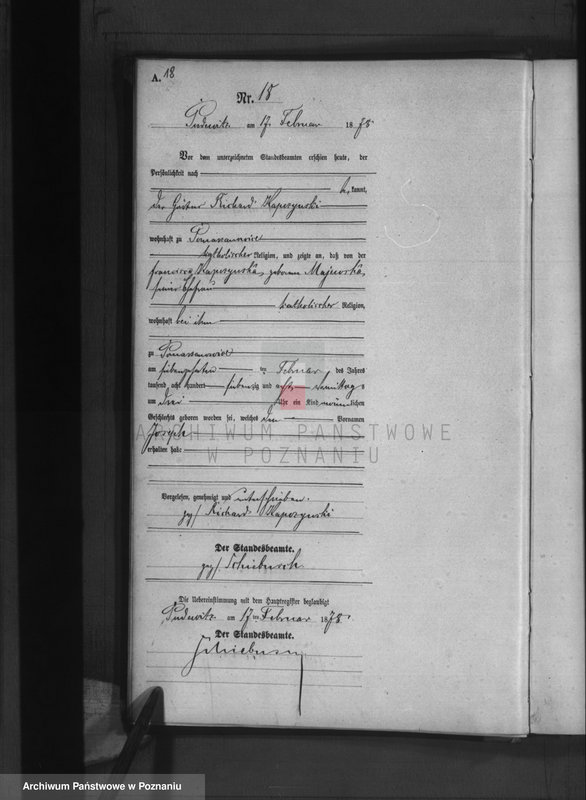 A. 18
Nr. 18
Pudewitz am 17. Februar 1878
Vor dem unterzeichneten Standesbeamten erschien heute, der
Persönlichkeit nach
kannt,
der Gärtner Richard Kapczynski
wohnhaft zu Pomarzanowice
katholischer Religion, und zeigte an, daß von der
Francisca Kapczynska, geborenen Majewska,
seiner Ehefrau
katholischer Religion,
wohnhaft bei ihm
zu Pomarzanowice
am siebenzehnten ten Februar des Jahres
tausend acht hundert siebenzig und acht, Vormittags
um drei Uhr ein Kind männlichen
Geschlechts geboren worden sei, welches den Vornamen
Joseph
erhalten habe
Vorgelesen, genehmigt und unterschrieben.
gez/ Richard Kapczynski
Der Standesbeamte.
gez/.
Die Uebereinstimmung mit dem Hauptregister beglaubigt
Pudewitz am 17 ten Februar 1878.
Der Standesbeamte.
ARCHIWUM PAŃSTWOWE
W POZNANIU
Archiwum Państwowe w Poznaniu